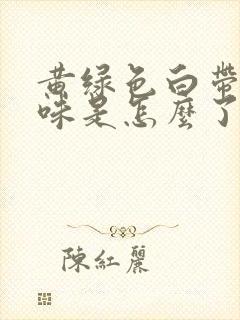 黄绿色白带
味是怎麼了
陳紅麗